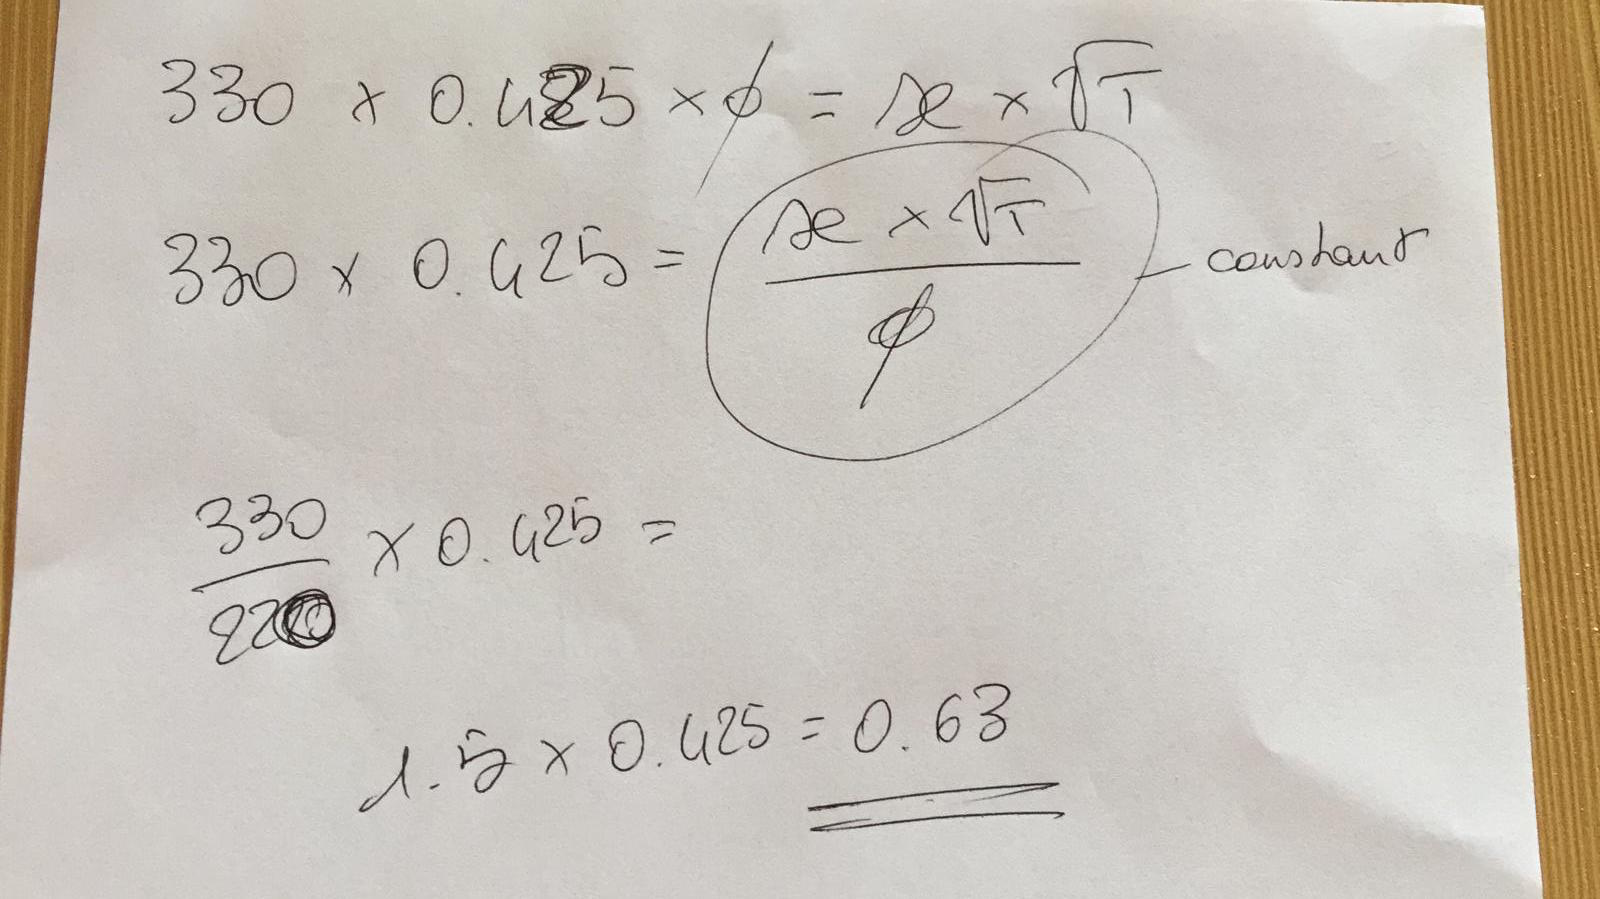 330 x 0.425 x ϕ = æ x √T
330 x 0.425 = æ x √T / ϕ - constant
330 / 220 x 0.425 =
1.5 x 0.425 = 0.63